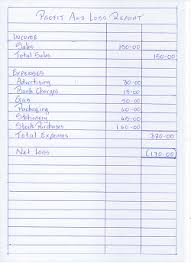 PROFIT AND LOSS REPORT
INCOME
Sales 150-00
Total Sales 150-00
EXPENSES
Advertising 30-00
Bank Charges 15-00
Gas
Packaging
Stationery
Stock Purchases
Total Expenses 320-00
Net Loss (170-00)